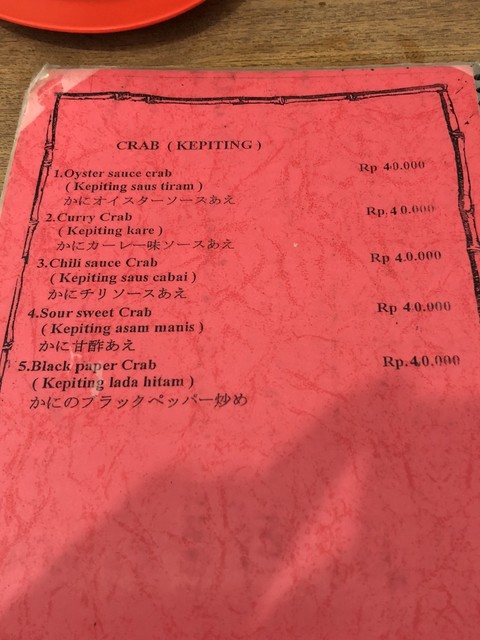 CRAB ( KEPITING )
1.Oyster sauce crab Rp 40.000
( Kepiting saus tiram )
かにオイスターソースあえ
2.Curry Crab Rp.40.000
( Kepiting kare )
かにカーレー味ソースあえ
3.Chili sauce Crab Rp 40.000
( Kepiting saus cabai )
かにチリソースあえ
4.Sour sweet Crab Rp 40.000
( Kepiting asam manis )
かに甘酢あえ
5.Black paper Crab Rp.40,000
( Kepiting lada hitam )
かにのブラックペッパー炒め